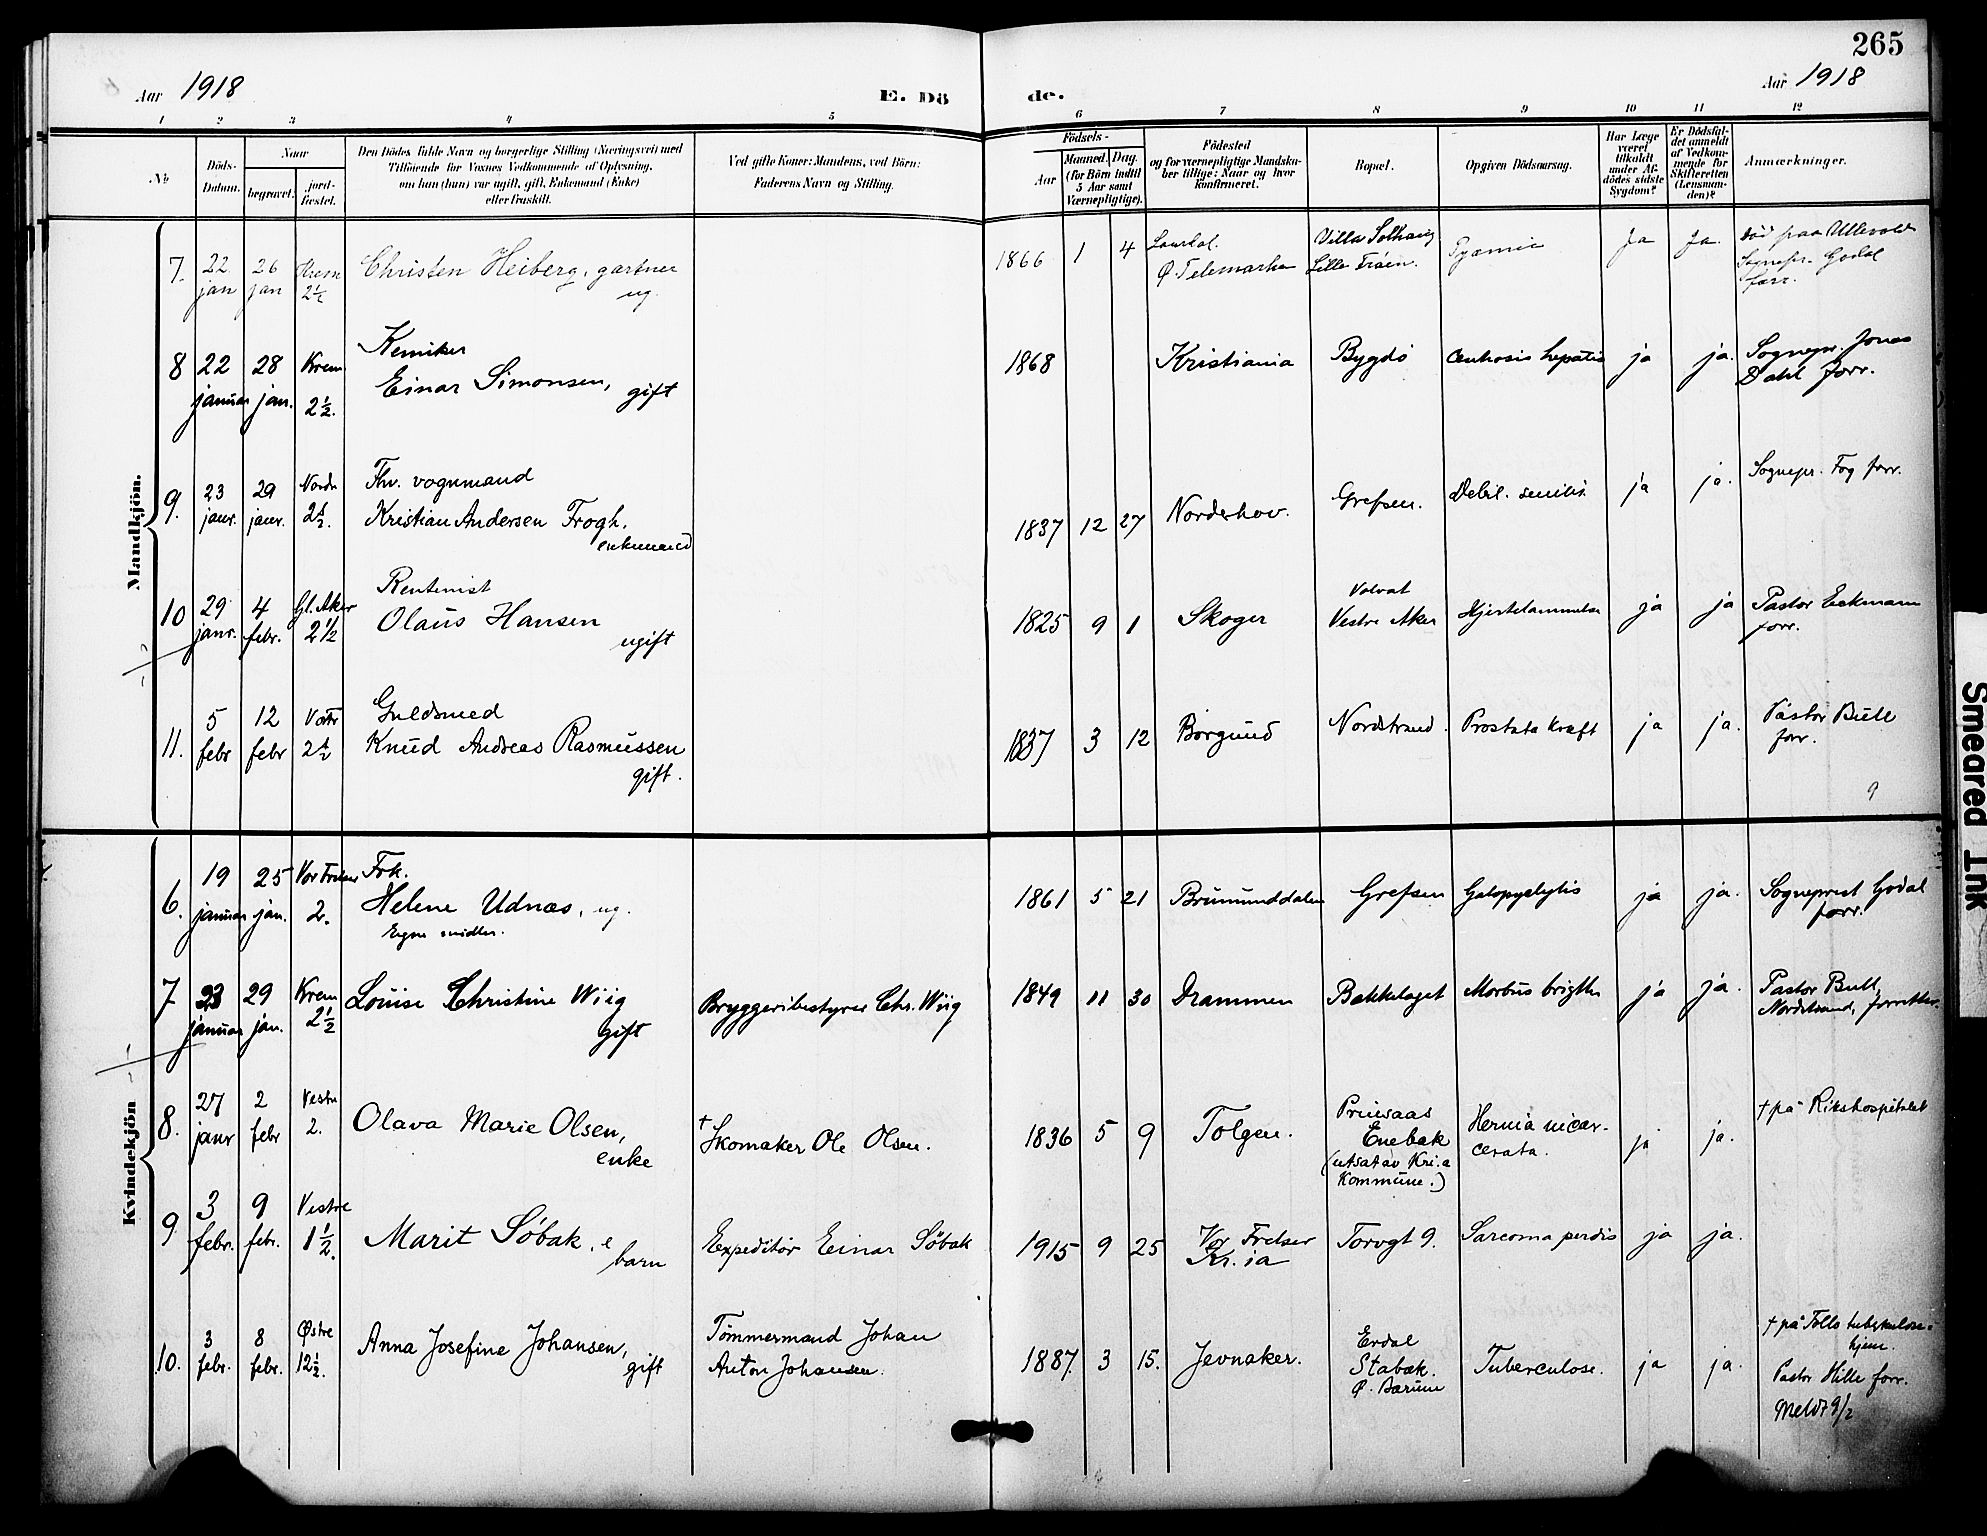 265
Aar 1918
E. Dö
de.
Aar 1918
1 2 3 4 5 6 7 8 9 10 11 12
No
Döds-
Datum.
Naar
begravet.
jord-
fæstet.
Den Dödes fulde Navn og borgerlige Stilling (Næringsvei) med
Tilföiende for Voxnes Vedkommende af Oplysning,
om han (hun) var ugift, gift, Enkemand (Enke)
eller fraskilt.
Ved gifte Koner: Mandens, ved Börn:
Faderens Navn og Stilling.
Födsels-
Aar
Maaned. Dag.
(for Börn indtil
5 Aar samt
Værnepligtige).
Födested
og for værnepligtige Mandska-
ber tillige: Naar og hvor
konfirmeret.
Bopæl.
Opgiven Dödsaarsag.
Har Læge
været
tilkaldt
under Af-
dödes sidste
Sygdom?
Er Dödsfal-
det anmeldt
af Vedkom-
mende for
Skifteretten
(Lensman-
den)?
Anmærkninger.
Mandkjön.
7. 22 jan 26 jan Krem 2½
Christen Heiberg, gartner
ug.
1866 1 4
Ø. Telemarken
Villa Solhaug
Lille Frøen.
Pyæmie
Ja Ja.
Død paa Ullevold
Sognepr. Godal
forr.
8 22 januar 28 jan. Krem 2½.
Kemiker
Einar Simonsen, gift
1868
Kristiania
Bygdö
hepatis
ja ja.
Sognepr. Jonas
Dahl forr.
9. 23 janr. 29 janr. Nordr 2½.
Fhv. vognmand
Kristian Andersen Frogh.
enkemand
1837 12 27
Norderhov.
Grefsen.
Debil. senilis
ja ja.
Sognepr. Fog forr.
10 29 janr. 4 febr. Gl. Aker 2½
Rentenist
Olaus Hansen
ugift
1825 9 1
Skoger
Volvat
Vestre Aker
Hjertelammelse
ja ja
Pastor Eckmann
forr.
11. 5 febr 12 febr 2½
Guldsmed
Knud Andreas Rasmussen
gift.
1837 3 12
Borgund
Nordstrand.
Prostata kræft
ja ja.
Pastor Bull
forr.
9
Kvindekjön
6. 19 januar 25 jan. Vor Frelser 2.
Frk.
Helene Udnæs, ug.
Egne midler.
1861 5 21
Brumunddalen
Grefsen
ja ja.
Sogneprest Godal
forr.
7 23 januar 29 jan. Krem 2½
Louise Christine Wiig
gift
Bryggeribestyrer Chr. Wiig
1849 11 30
Drammen
Bækkelaget
Morbus brigthi
ja ja.
Pastor Bull,
Nordstrand, forretter.
8. 27 janr 2 febr Vestre 2.
Olava Marie Olsen,
enke
† Skomaker Ole Olsen.
1836 5 9
Tolgen.
Enebak
(utsat av Kr.a
Kommune.)
Hernia incar-
cerata.
ja ja.
† på Rikshospitalet
9 3 febr. 9 febr. Vestre 1½.
Marit Söbak, e
barn
Expeditör Einar Söbak
1915 9 25
Vor Frelser
Kr.ia
Torvgt 9.
Sarcoma
ja ja.
10. 3 febr. 8 febr. Østre 12½.
Anna Josefine Johansen,
gift
Tömmermand Johan
Anton Johansen.
1887. 3 15.
Jevnaker.
Erdal
Stabæk.
Ø. Bærum
Tuberculose.
ja ja.
† på Tolls tuberkulose-
hjem.
Pastor Hille forr.
Meldt 9/2
Smeared Ink